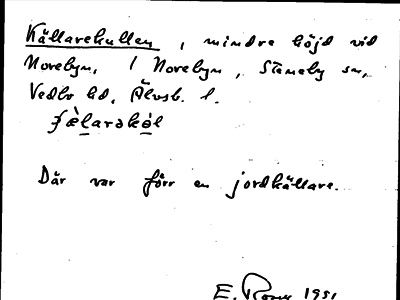 Källarekullen, mindre höjd vid
Norebyn, 1 Norebyn, Steneby sn,
Vedbo hd, Älvsb. l.
Där var förr en jordkällare.
E. 1951